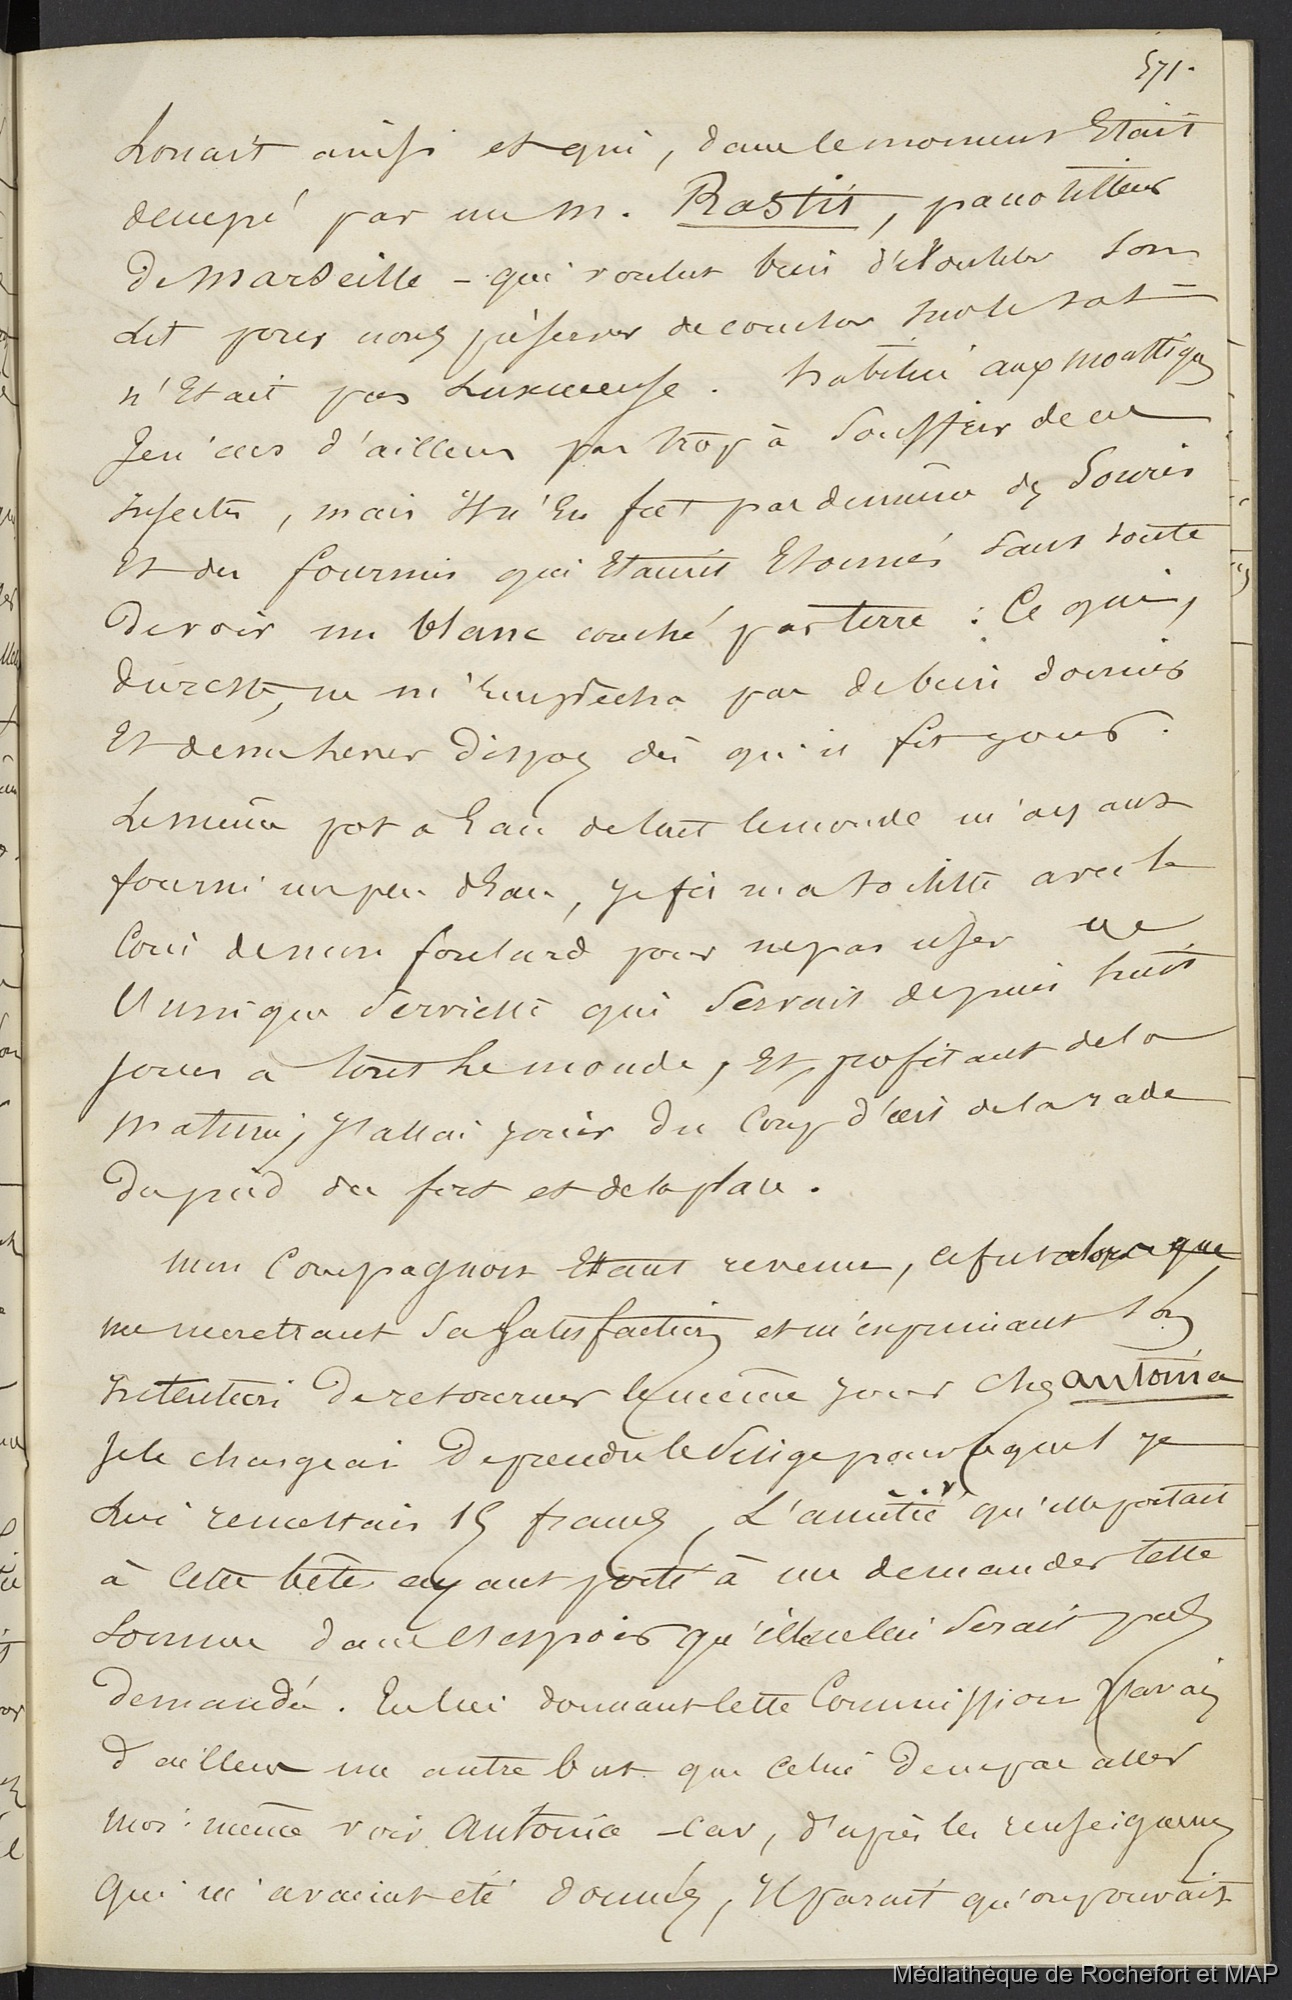 571.
Louait ainsi et qui, dans le moment Etait
occupé par un M. Rastit, pacotilleur
De Marseille – qui voulut bien dédoubler son
Lit pour nous préserver de coucher sur le sol –
n'Etait pas Luxueuse. habitué aux moustiques
Je n'eus d'ailleurs pas trop à Souffrir de ces
Insectes, mais Il n'En fut pas de même des Souris
Et des fourmis qui Etaient Etonnés Sans doute
De voir un blanc couché par terre : Ce qui,
du reste, ne m'Empêcha pas de bien dormir
Et de m'Lever Dispos dès qu'il fit jour.
Le même pot a Eau de tout le monde m'ayant
fourni un peu d'Eau, je fis ma toilette avec le
Coin de mon foulard pour ne pas user de
l'unique Serviette qui Servait depuis huit
jours à tout Le monde, Et, profitant de la
matinée, J'allai jouir Du Coup d'œil de la rade
Du pied du fort et de la place.
Mon Compagnon Etant revenu, ce fut alors que
me montrant Sa Satisfaction et m'exprimant Son
Intention De retourner le même jour chez Antonia
Je le chargeai De prendre le Singe pour lequel je
Lui remettais 15 francs, L'amitié qu'elle portait
à Cette bête ayant porté à me demander Cette
Somme dans l'Espoir qu'elle ne lui Serait pas
Demandée. En lui donnant Cette Commission J'avais
D'ailleurs un autre but que Celui De ne pas aller
Moi-même voir Antonia – Car, d'après les renseignemens
Qui m'avaient été donnés, Il parait qu'on pouvait
Médiathèque de Rochefort et MAP